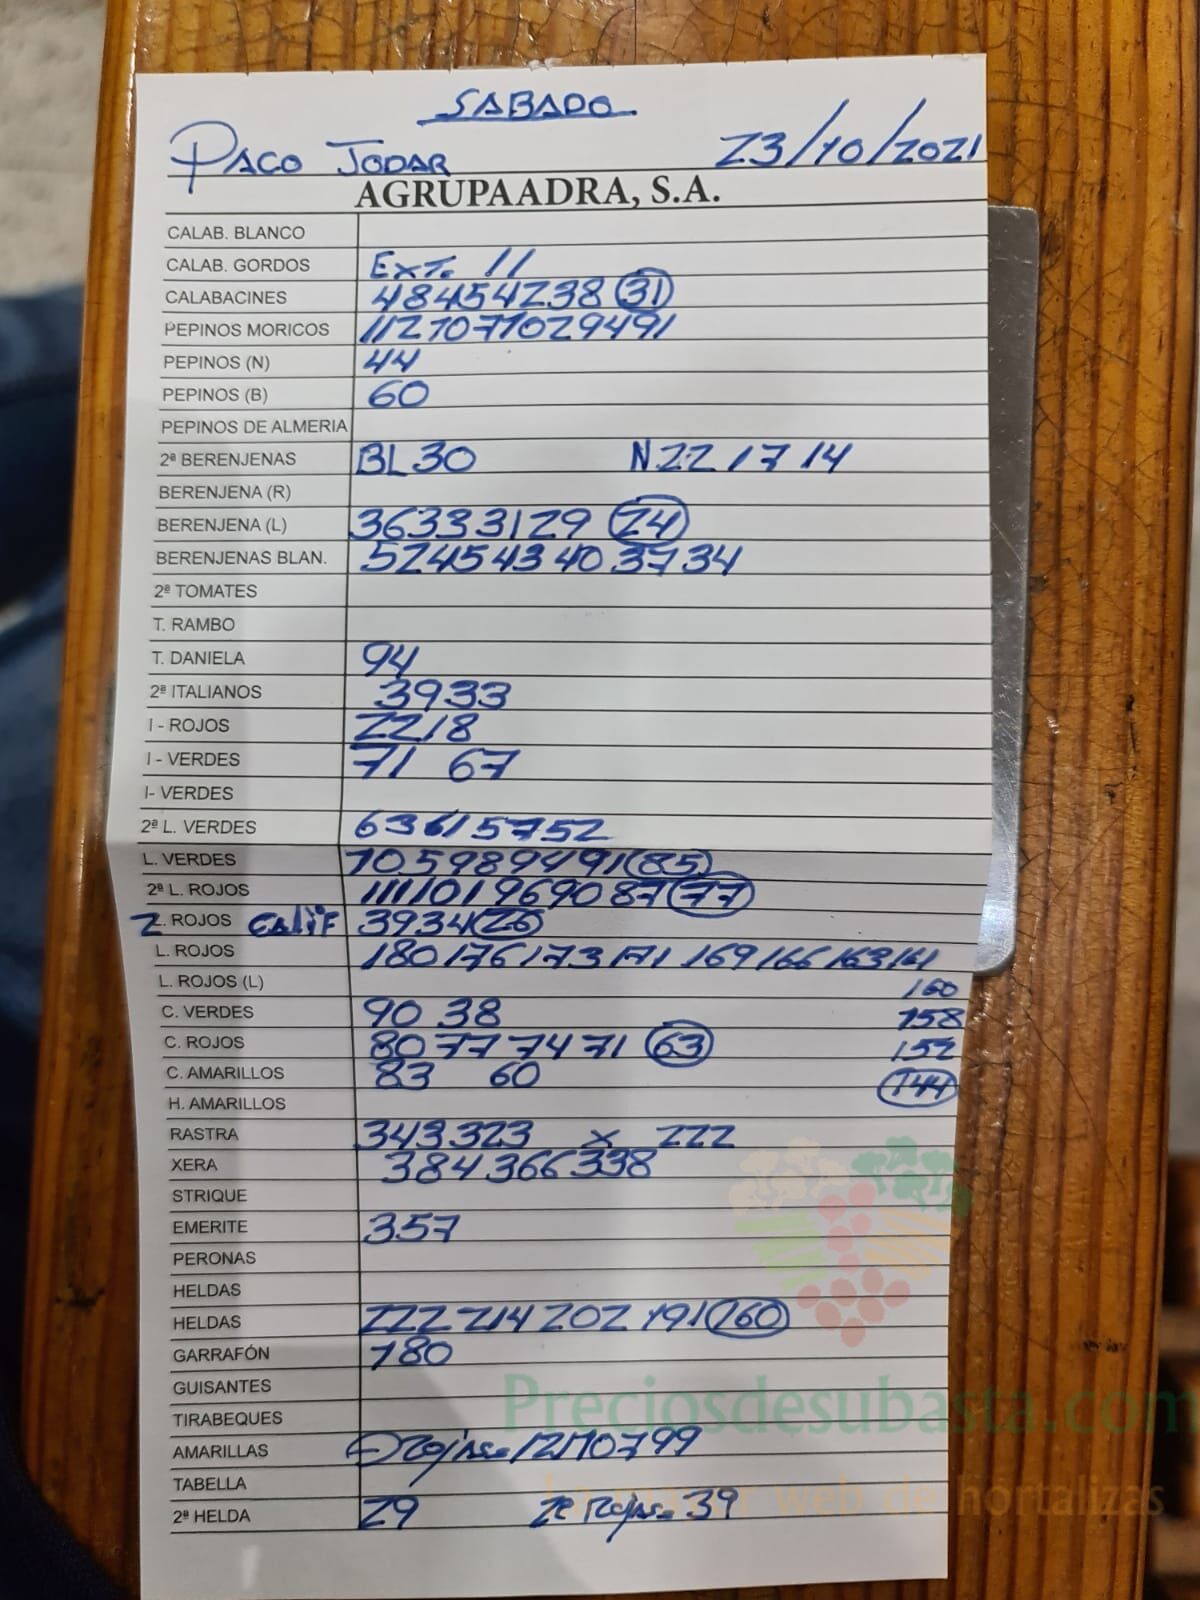 SABADO
PACO JODAR 23/10/2021
AGRUPAADRA, S.A.
CALAB. BLANCO
CALAB. GORDOS Ext. 11
CALABACINES 48 45 42 38 31
PEPINOS MORICOS 112 107 102 94 91
PEPINOS (N) 44
PEPINOS (B) 60
PEPINOS DE ALMERIA
2ª BERENJENAS BL 30 N 22 17 14
BERENJENA (R)
BERENJENA (L) 36 33 31 29 24
BERENJENAS BLAN. 52 45 43 40 37 34
2ª TOMATES
T. RAMBO
T. DANIELA 94
2ª ITALIANOS 39 33
I - ROJOS 22 18
I - VERDES 71 67
I- VERDES
2ª L. VERDES 63 61 57 52
L. VERDES 105 98 94 91 85
2ª L. ROJOS 111 101 96 90 87 77
2 ROJOS CALIF 39 34 26
L. ROJOS 180 176 173 171 169 166 163 161
L. ROJOS (L) 160
C. VERDES 90 38 158
C. ROJOS 80 77 74 71 63 152
C. AMARILLOS 83 60 144
H. AMARILLOS
RASTRA 343 323 x 222
XERA 384 366 338
STRIQUE
EMERITE 357
PERONAS
HELDAS
HELDAS 222 214 202 191 160
GARRAFÓN 180
GUISANTES
TIRABEQUES
Preciosdesubasta.com
AMARILLAS Rojas= 121 107 99
TABELLA
La mayor web de hortalizas
2ª HELDA 29 2ª Rojas= 39